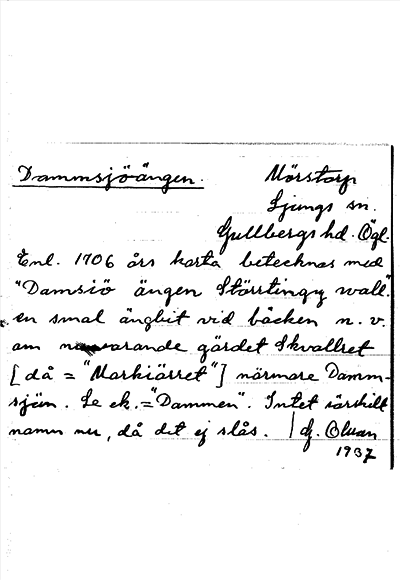 Dammsjöängen. Mörstorp
Ljungs sn.
Gullbergs hd. Ögl.
Enl. 1706 års karta betecknas med
"Damsiö ängen Störtingz wall".
en smal ängbit vid bäcken n. v.
om nuvarande gärdet Skvallret
[då = "Markiärret"] närmare Damm-
sjön. Se ek. = "Dammen". Intet särskilt
namn nu, då det ej slås.
1937